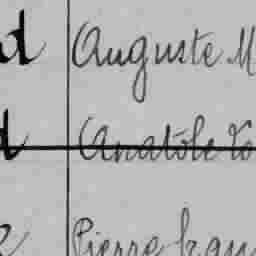 d Auguste M
d Anatole Vo
Pierre Fran